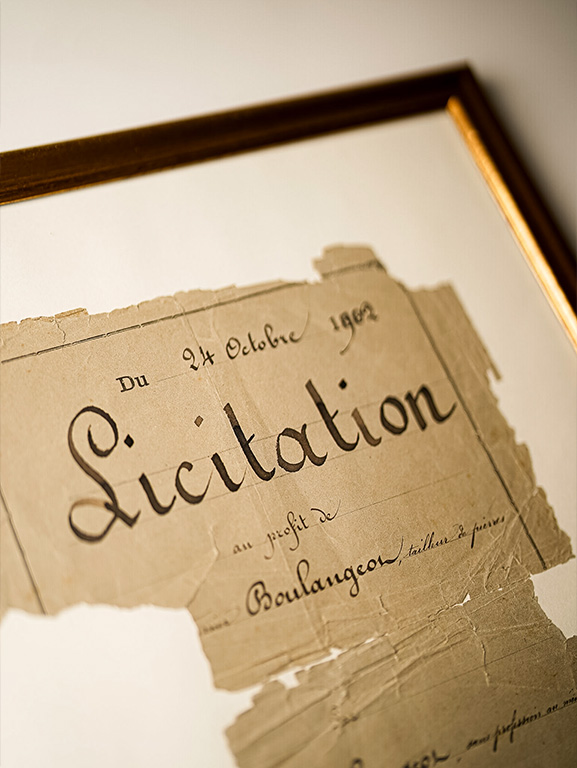 Du 24 Octobre 1902
Licitation
au profit de
Boulangeon, tailleur de pierres
sans profession au